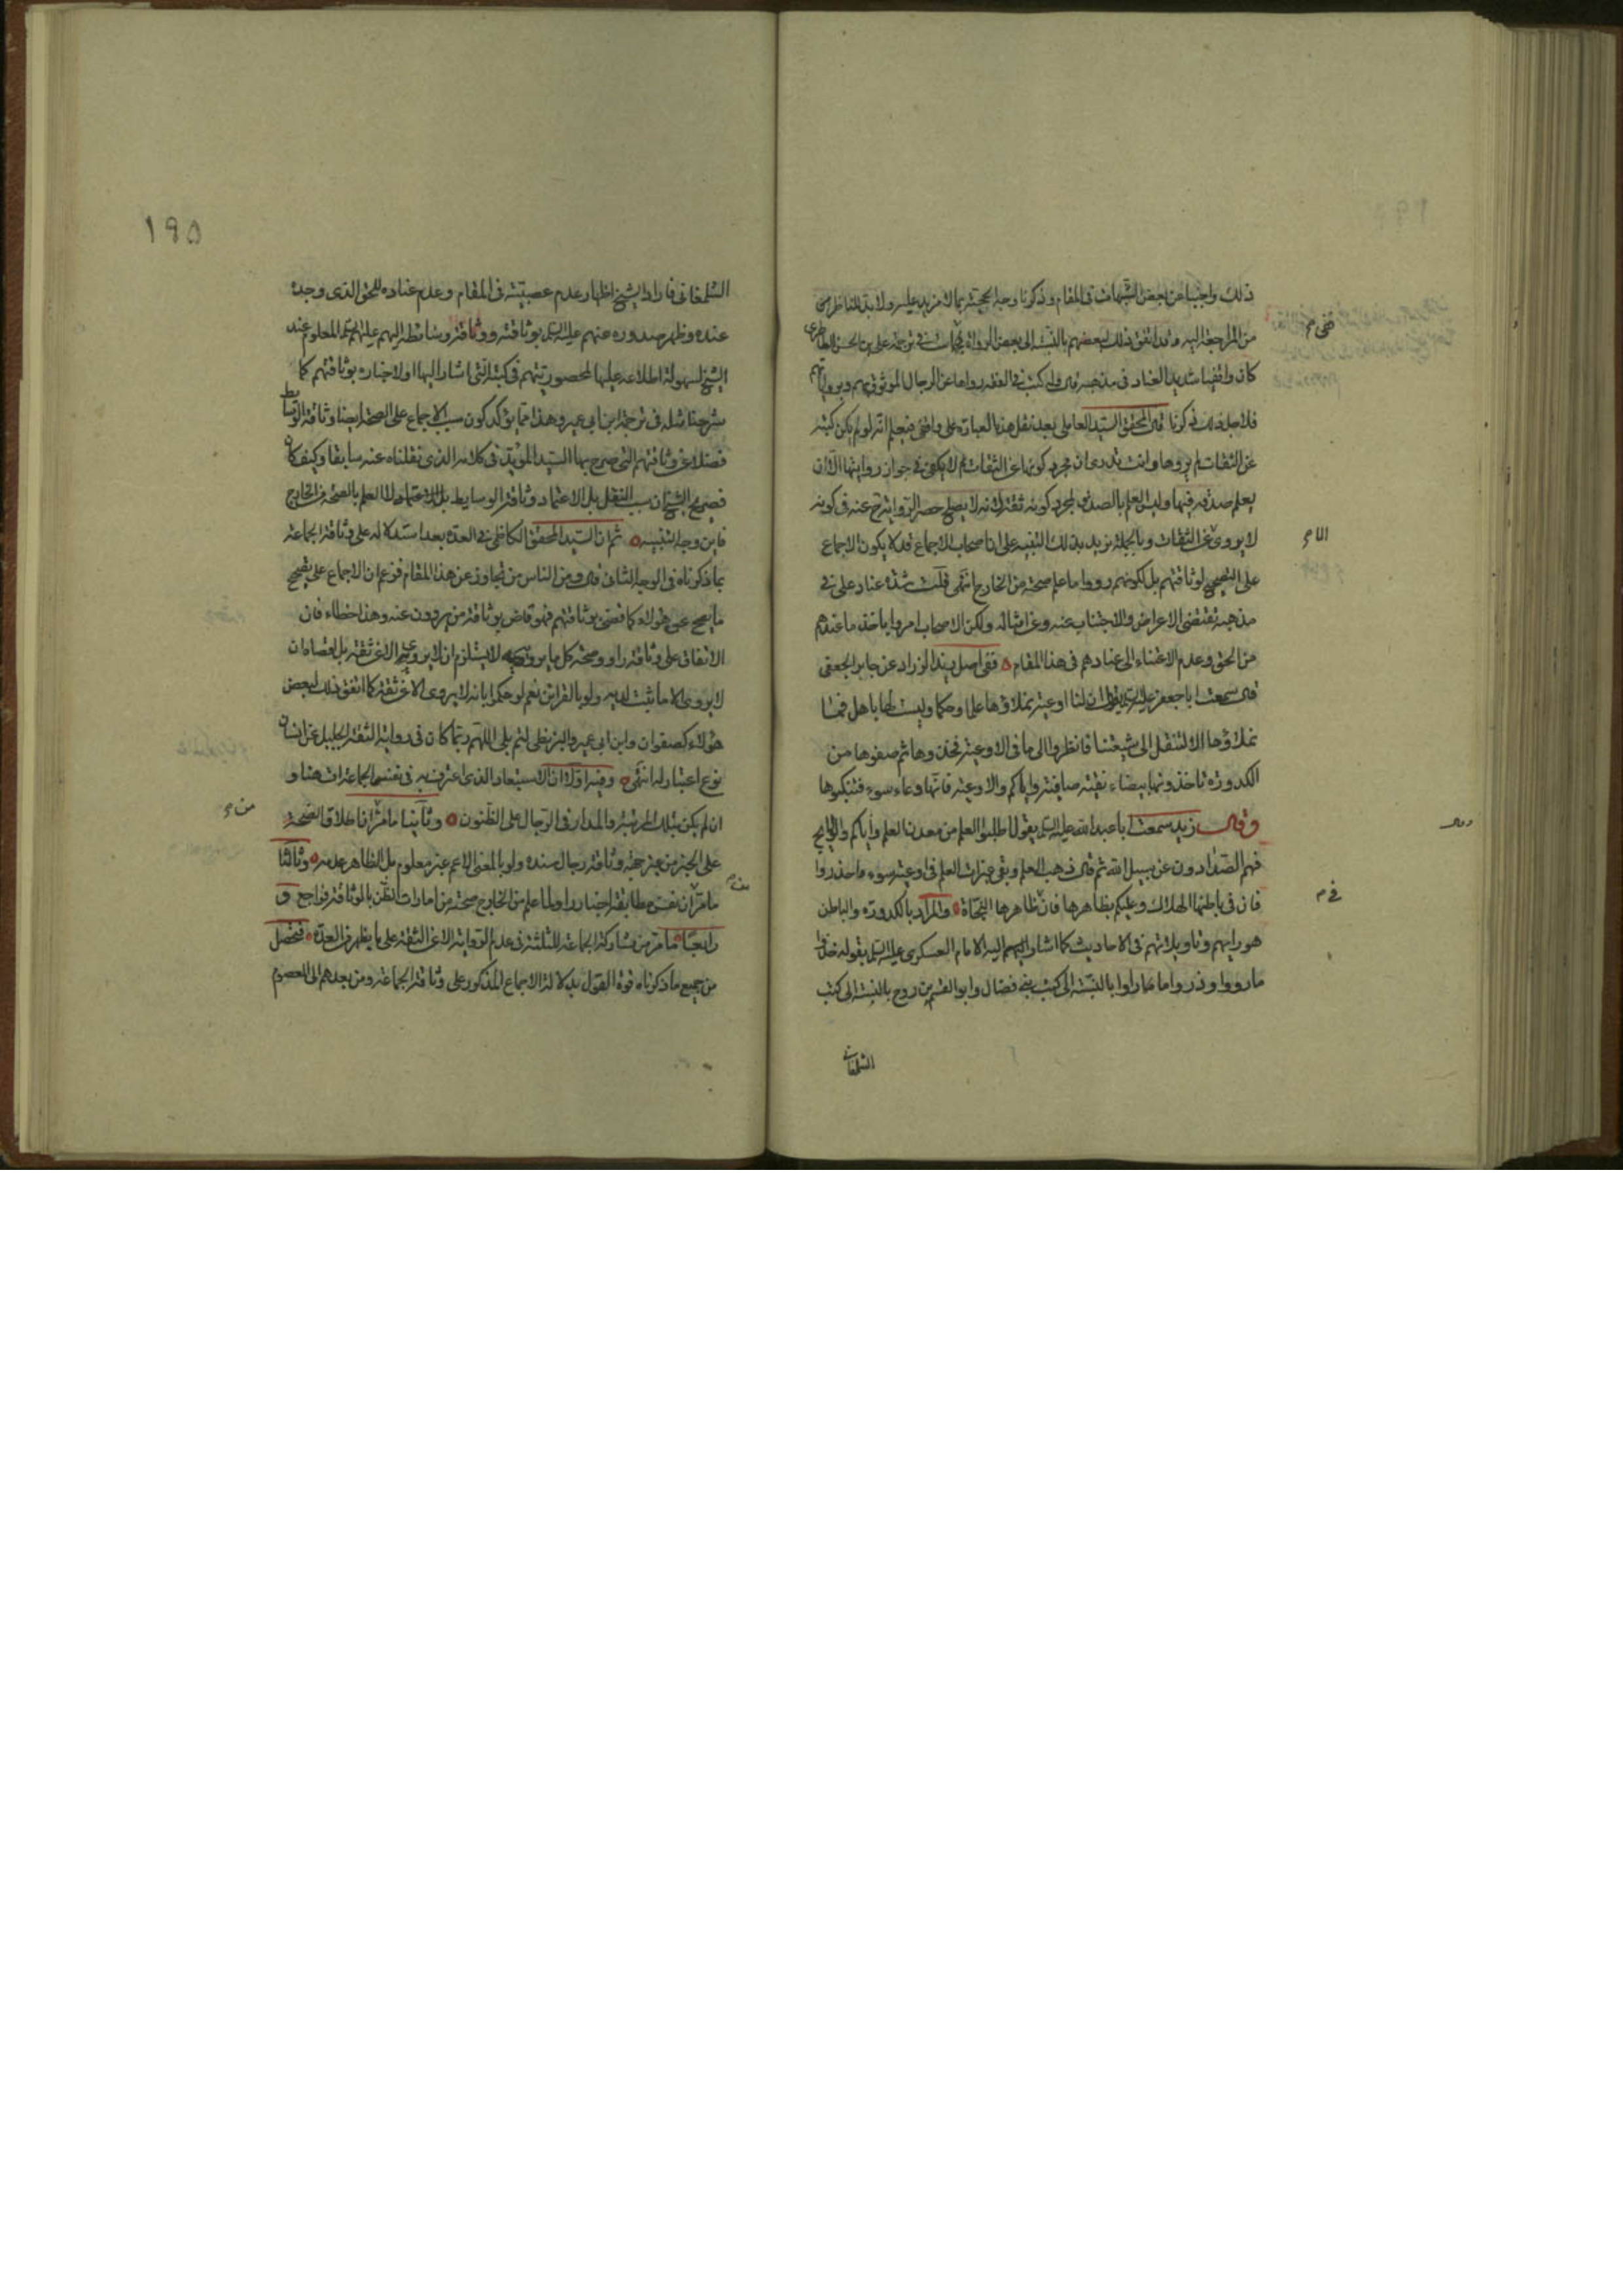 ذلك واجبنا عن بعض الشبهات في المقام وذكرنا وجه الحجية بما لا مزيد عليه ولا بد للناظر
من المراجعة اليه وقد اتفق ذلك لبعضهم بالنسبة الى بعض الرواة في ترجمة علي بن الحسن الطاطري
كان واقفيا شديد العناد في مذهبه وله كتب في الفقه رواها عن الرجال الموثوق بهم وبرواياتهم
فلاجل ذلك ذكرنا قال المحقق السيد العاملي بعد نقل هذه العبارة
عن الثقات لم يروها وانت تدري ان مجرد كونها عن الثقات لا يكفي في جواز روايتها الا ان
يعلم صدقه فيها وليس العلم بالصدق لمجرد كونه ثقة
لا يروي عن الثقات وبالجملة نريد بذلك التنبيه على ان اصحاب الاجماع قد لا يكون الاجماع
على التصحيح لوثاقتهم بل لكونهم رووا ما علم صحته من الخارج انتهى قلت شدة عناد علي في
مذهبه تقتضي الاعراض والاجتناب عنه وعن امثاله ولكن الاصحاب امروا باخذ ما عندهم
من الحق وعدم الاعتناء الى عنادهم في هذا المقام ففي اصل زيد الزراد عن جابر الجعفي
قال سمعت ابا جعفر عليه السلم يقول ان لنا اوعية نملاؤها علما وحكما وليست لها باهل فما
نملاؤها الا لتنقل الى شيعتنا فانظروا الى ما في الاوعية فخذوها ثم صفوها من
الكدورة تاخذونها بيضاء نقية صافية واياكم والاوعية فانها وعاء سوء فتنكبوها
وقال زيد سمعت ابا عبد الله عليه السلم يقول اطلبوا العلم من معدن العلم واياكم والولايج
فهم الصدادون عن سبيل الله ثم قال ذهب العلم وبقي غبرات العلم في اوعية سوء واحذروا
فان في باطنها الهلاك وعليكم بظاهرها فان ظاهرها النجاة والمراد بالكدورة والباطن
هو رايهم وتاويلاتهم في الاحاديث كما اشار اليهم اليه الامام العسكري عليه السلم بقوله خذوا
ما رووا وذروا ما راوا بالنسبة الى كتب بني فضال وابو القسم بن روح بالنسبة الى كتب
الشلمغاني
١٩٥
الشلمغاني فاراد الشيخ اظهار عدم عصبيته في المقام وعدم عناده للحق الذي وجده
عنده وظهر صدوره عنهم عليهم السلم بوثاقته ووثاقة وسائطه اليهم عليهم السلم المعلوم عند
الشيخ لسهولة اطلاعه عليها لمحصوريتهم في كتبه التي اشار اليها او لاخباره بوثاقتهم كما
شرحنا مثله في ترجمة ابن ابي عمير وهذا مما يؤكد كون سبب الاجماع على الصحة ايضا وثاقة الوسايط
فضلا عن وثاقتهم التي صرح بها السيد المؤيد في كلامه الذي نقلناه عنه سابقا وكيف كان
فصريح الشيخ ان سبب النقل بل الاعتماد وثاقة الوسايط لا العلم بالصحة من الخارج
فاين وجه التنبيه ثم ان السيد المحقق الكاظمي في العدة بعد استدلاله على وثاقة الجماعة
بما ذكرناه في الوجه الثاني قال ومن الناس من تجاوز عن هذا المقام فزعم ان الاجماع على تصحيح
ما يصح عن هؤلاء كما قضى بوثاقتهم فهو قاض بوثاقة من يروون عنه وهذا خطاء فان
الاتفاق على وثاقة راو وصحة كل ما يرويه لا يستلزم ان لا يروي الا عن ثقة بل اقصاه ان
لا يروي الا ما يثبت لديه ولو بالقراين نعم لو حكموا بانه لا يروي الا عن ثقة كما اتفق ذلك لبعض
هؤلاء كصفوان وابن ابي عمير والبزنطي لتم بلى اللهم ربما كان في رواية الثقة الجليل عن انسان
نوع اعتبار له انتهى وفيه اولا ان الاستبعاد الذي اعترف به في نفس الجماعة ات هنا و
ان لم يكن بتلك المرتبة والمدار في الرجال على الظنون وثانيا ما مر ان اطلاق الصحة
على الخبر من غير جهة وثاقة رجال سنده ولو بالمعنى الاعم غير معلوم بل الظاهر عدمه وثالثا
ما مر ان نفس مطابقة اخبار راو لما علم من الخارج صحته من امارات الظن بالوثاقة فراجع و
رابعا ما مر من مشاركة الجماعة للثلثة في عدم الرواية الا عن الثقة على ما يظهر من العدة فتحصل
من جميع ما ذكرناه قوة القول بدلالة الاجماع المذكور على وثاقة الجماعة ومن بعدهم الى المعصوم